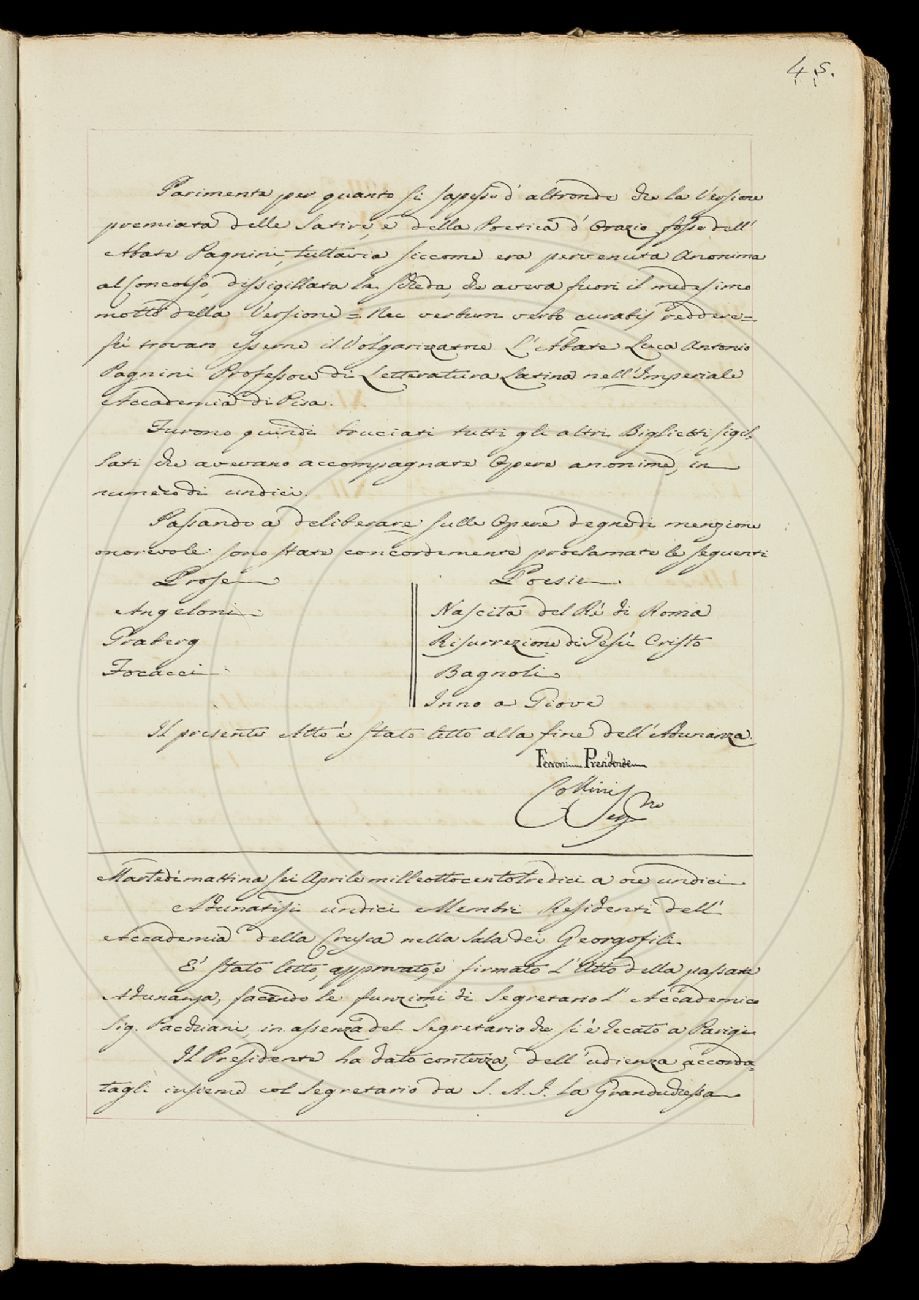 45.
Parimente per quanto si sapesse d'altronde che la Versione
premiata delle Satire, e della Poetica d'Orazio fosse dell'
Abate Pagnini, tuttavia siccome era pervenuta Anonima
al Concorso, dissigillata la Scheda, che aveva fuori il medesimo
motto della Versione = Nec verbum verbo curabis reddere =
si trovaro esserne il Volgarizzatore L'Abate Luca Antonio
Pagnini Professore di Letteratura Latina nell'Imperiale
Accademia di Pisa.
Furono quindi bruciati tutti gli altri Biglietti sigil,
lati che avevano accompagnate Opere anonime, in
numero di undici.
Passando a deliberare sulle Opere degne di menzione
onorevole sono state concordemente proclamate le seguenti
Prose
Poesie
Angeloni
Nascita del Rè di Roma
Graberg
Risurrezione di Gesù Cristo
Focacci
Bagnoli
Inno a Giove
Il presente Atto è stato letto alla fine dell'Adunanza
Feroni Presidente
Collini Seg.rio
Martedì mattina sei Aprile milleottocentotredici a ore undici
Adunatisi undici Membri Residenti dell'
Accademia della Crusca nella Sala dei Georgofili.
E' stato letto, approvato, e firmato l'Atto della passata
Adunanza, facendo le funzioni di Segretario l'Accademico
Sig. Pacchiani in assenza del Segretario che si è recato a Parigi
Il Presidente ha dato contezza, dell'udienza accorda=
tagli insieme col Segretario da S. A. I. La Granduchessa